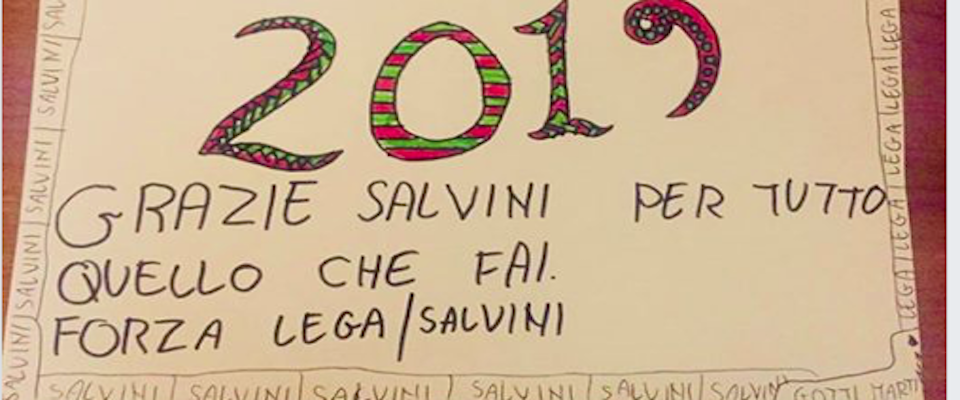 2019
GRAZIE SALVINI PER TUTTO
QUELLO CHE FAI.
FORZA LEGA/SALVINI
SALVINI | SALVINI | SALVINI | SALVINI | SALVINI
LEGA | LEGA | LEGA | LEGA | LEGA | LEGA
SALVINI | SALVINI | SALVINI | SALVINI | SALVINI | SALVINI GOTTI MARTI